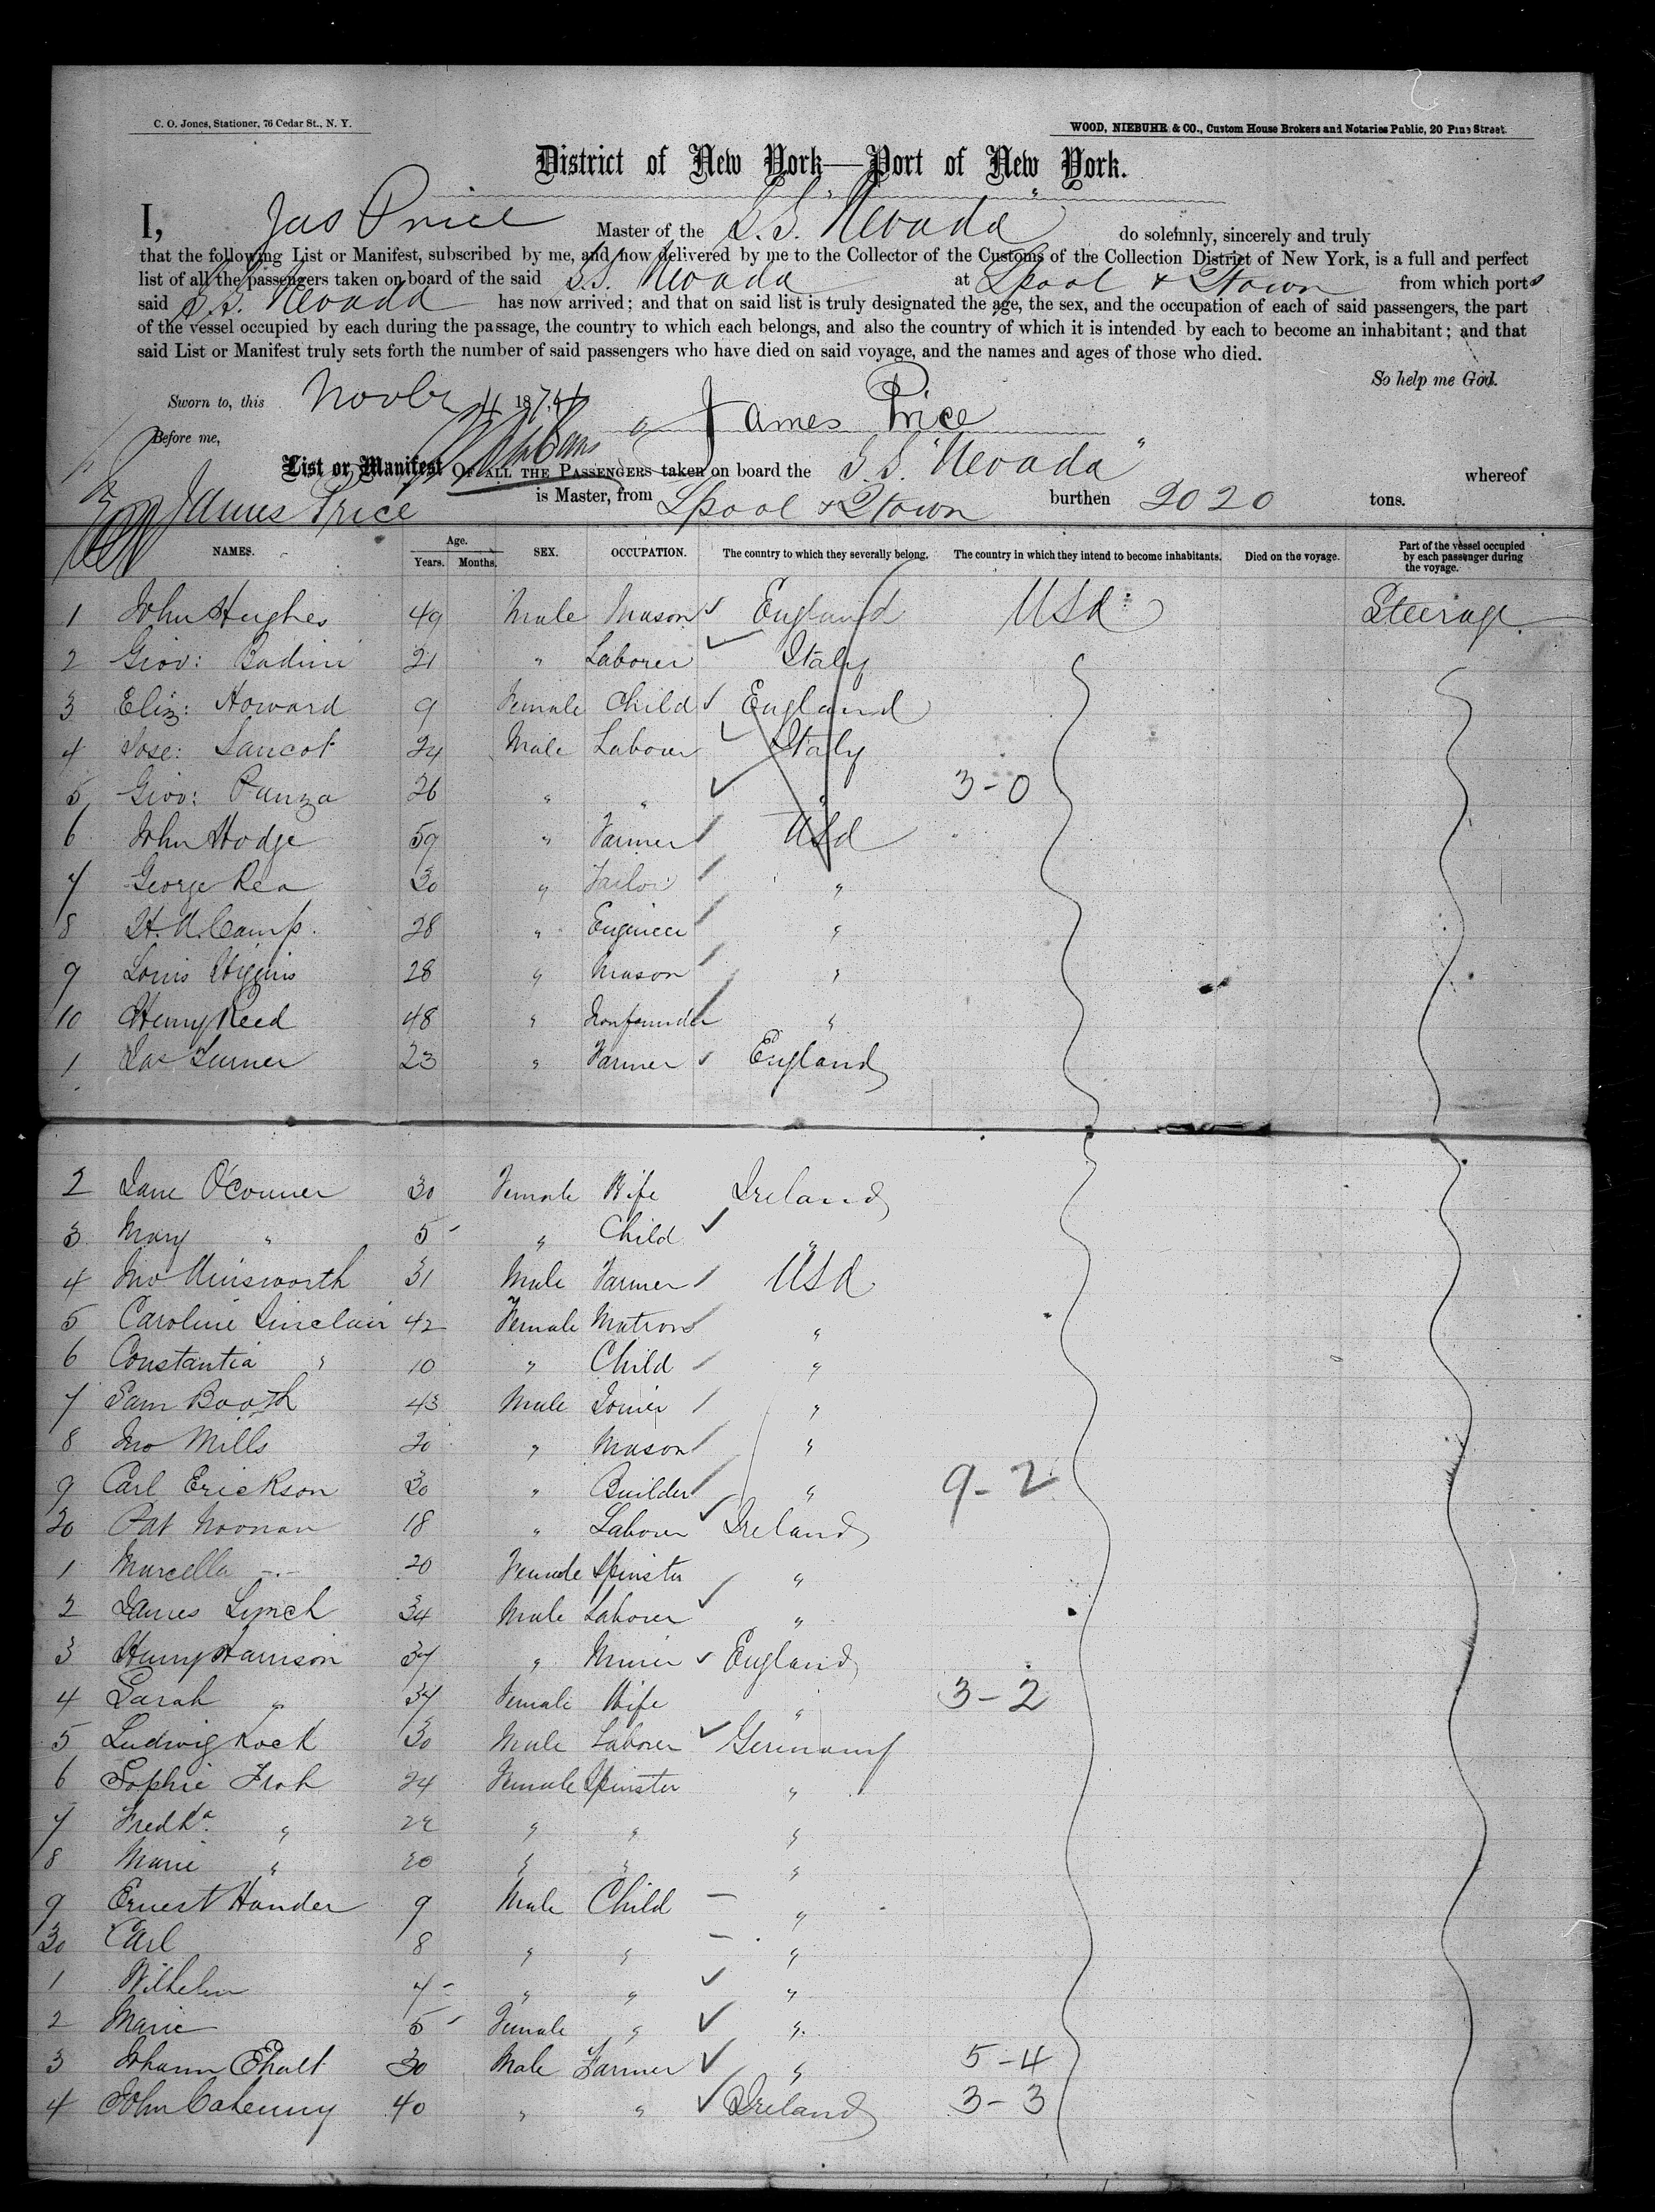 C. O. Jones, Stationer, 76 Cedar St., N. Y.
WOOD, NIEBUHR & CO., Custom House Brokers and Notaries Public, 20 Pine Street.
District of New York—Port of New York.
I, Jas Price Master of the S.S. "Nevada" do solemnly, sincerely and truly
that the following List or Manifest, subscribed by me, and now delivered by me to the Collector of the Customs of the Collection District of New York, is a full and perfect
list of all the passengers taken on board of the said S.S. Nevada at Lpool & Qtown from which ports
said S.S. Nevada has now arrived; and that on said list is truly designated the age, the sex, and the occupation of each of said passengers, the part
of the vessel occupied by each during the passage, the country to which each belongs, and also the country of which it is intended by each to become an inhabitant; and that
said List or Manifest truly sets forth the number of said passengers who have died on said voyage, and the names and ages of those who died.
So help me God.
Sworn to, this Novbr 4 1874
James Price
Before me,
List or Manifest OF ALL THE PASSENGERS taken on board the S.S. "Nevada" whereof
James Price is Master, from Lpool & Qtown burthen 2020 tons.
NAMES. Age. Years. Months. SEX. OCCUPATION. The country to which they severally belong. The country in which they intend to become inhabitants. Died on the voyage. Part of the vessel occupied by each passenger during the voyage.
1 John Hughes 49 Male Mason England USA Steerage
2 Giov: Badini 21 " Laborer Italy
3 Eliz: Howard 9 Female Child England
4 Jose: Sancot 24 Male Labour Italy
5 Giov: Panza 26 " " " 3-0
6 John Hodge 59 " Farmer USA
7 George Rea 30 " Tailor "
8 H. A. Camp. 28 " Engineer "
9 Louis Higgins 28 " Mason "
10 Henry Reed 48 " Ironfounder "
1 Jas Turner 23 " Farmer England
2 Jane O'Conner 30 Female Wife Ireland
3 Mary " 5 " Child "
4 Jno Ainsworth 31 Male Farmer USA
5 Caroline Sinclair 42 Female Matron "
6 Constantia " 10 " Child "
7 Sam Booth 43 Male Joiner "
8 Jno Mills 20 " Mason "
9 Carl Erickson 30 " Builder " 9-2
20 Pat Noonan 18 " Labour Ireland
1 Marcella -.- 20 Female Spinster "
2 James Lynch 34 Male Laborer "
3 Henry Harrison 37 " Miner England
4 Sarah " 37 Female Wife " 3-2
5 Ludwig Kock 30 Male Laborer Germany
6 Sophie Froh 24 Female Spinster "
7 Fredka " 22 " " "
8 Marie " 20 " " "
9 Ernest Hander 9 Male Child "
30 Carl 8 " " "
1 Wilhelm 7 " " "
2 Marie 5 Female " "
3 Johann Ehalt 30 Male Farmer " 5-4
4 John Cahenny 40 " " Ireland 3-3